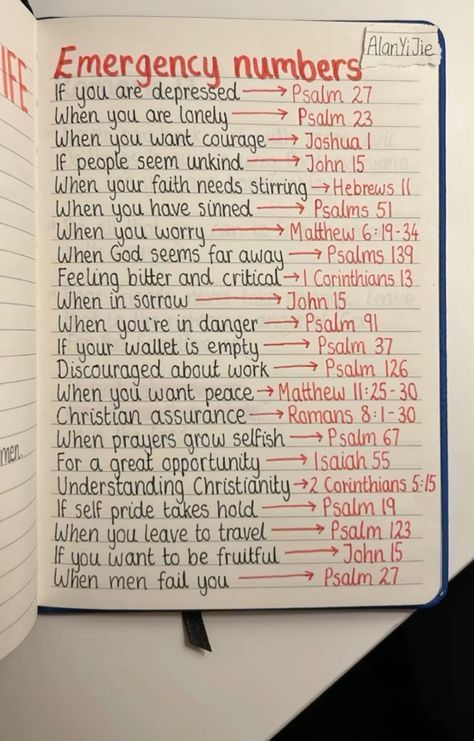 IFE
AlanYiJie
Emergency numbers
If you are depressed → Psalm 27
When you are lonely → Psalm 23
When you want courage → Joshua 1
If people seem unkind → John 15
When your faith needs stirring → Hebrews 11
When you have sinned → Psalms 51
When you worry → Matthew 6:19-34
When God seems far away → Psalms 139
Feeling bitter and critical → 1 Corinthians 13
When in sorrow → John 15
When you're in danger → Psalm 91
If your wallet is empty → Psalm 37
Discouraged about work → Psalm 126
When you want peace → Matthew 11:25-30
Christian assurance → Romans 8:1-30
When prayers grow selfish → Psalm 67
For a great opportunity → Isaiah 55
Understanding Christianity → 2 Corinthians 5:15
If self pride takes hold → Psalm 19
When you leave to travel → Psalm 123
If you want to be fruitful → John 15
When men fail you → Psalm 27
men.